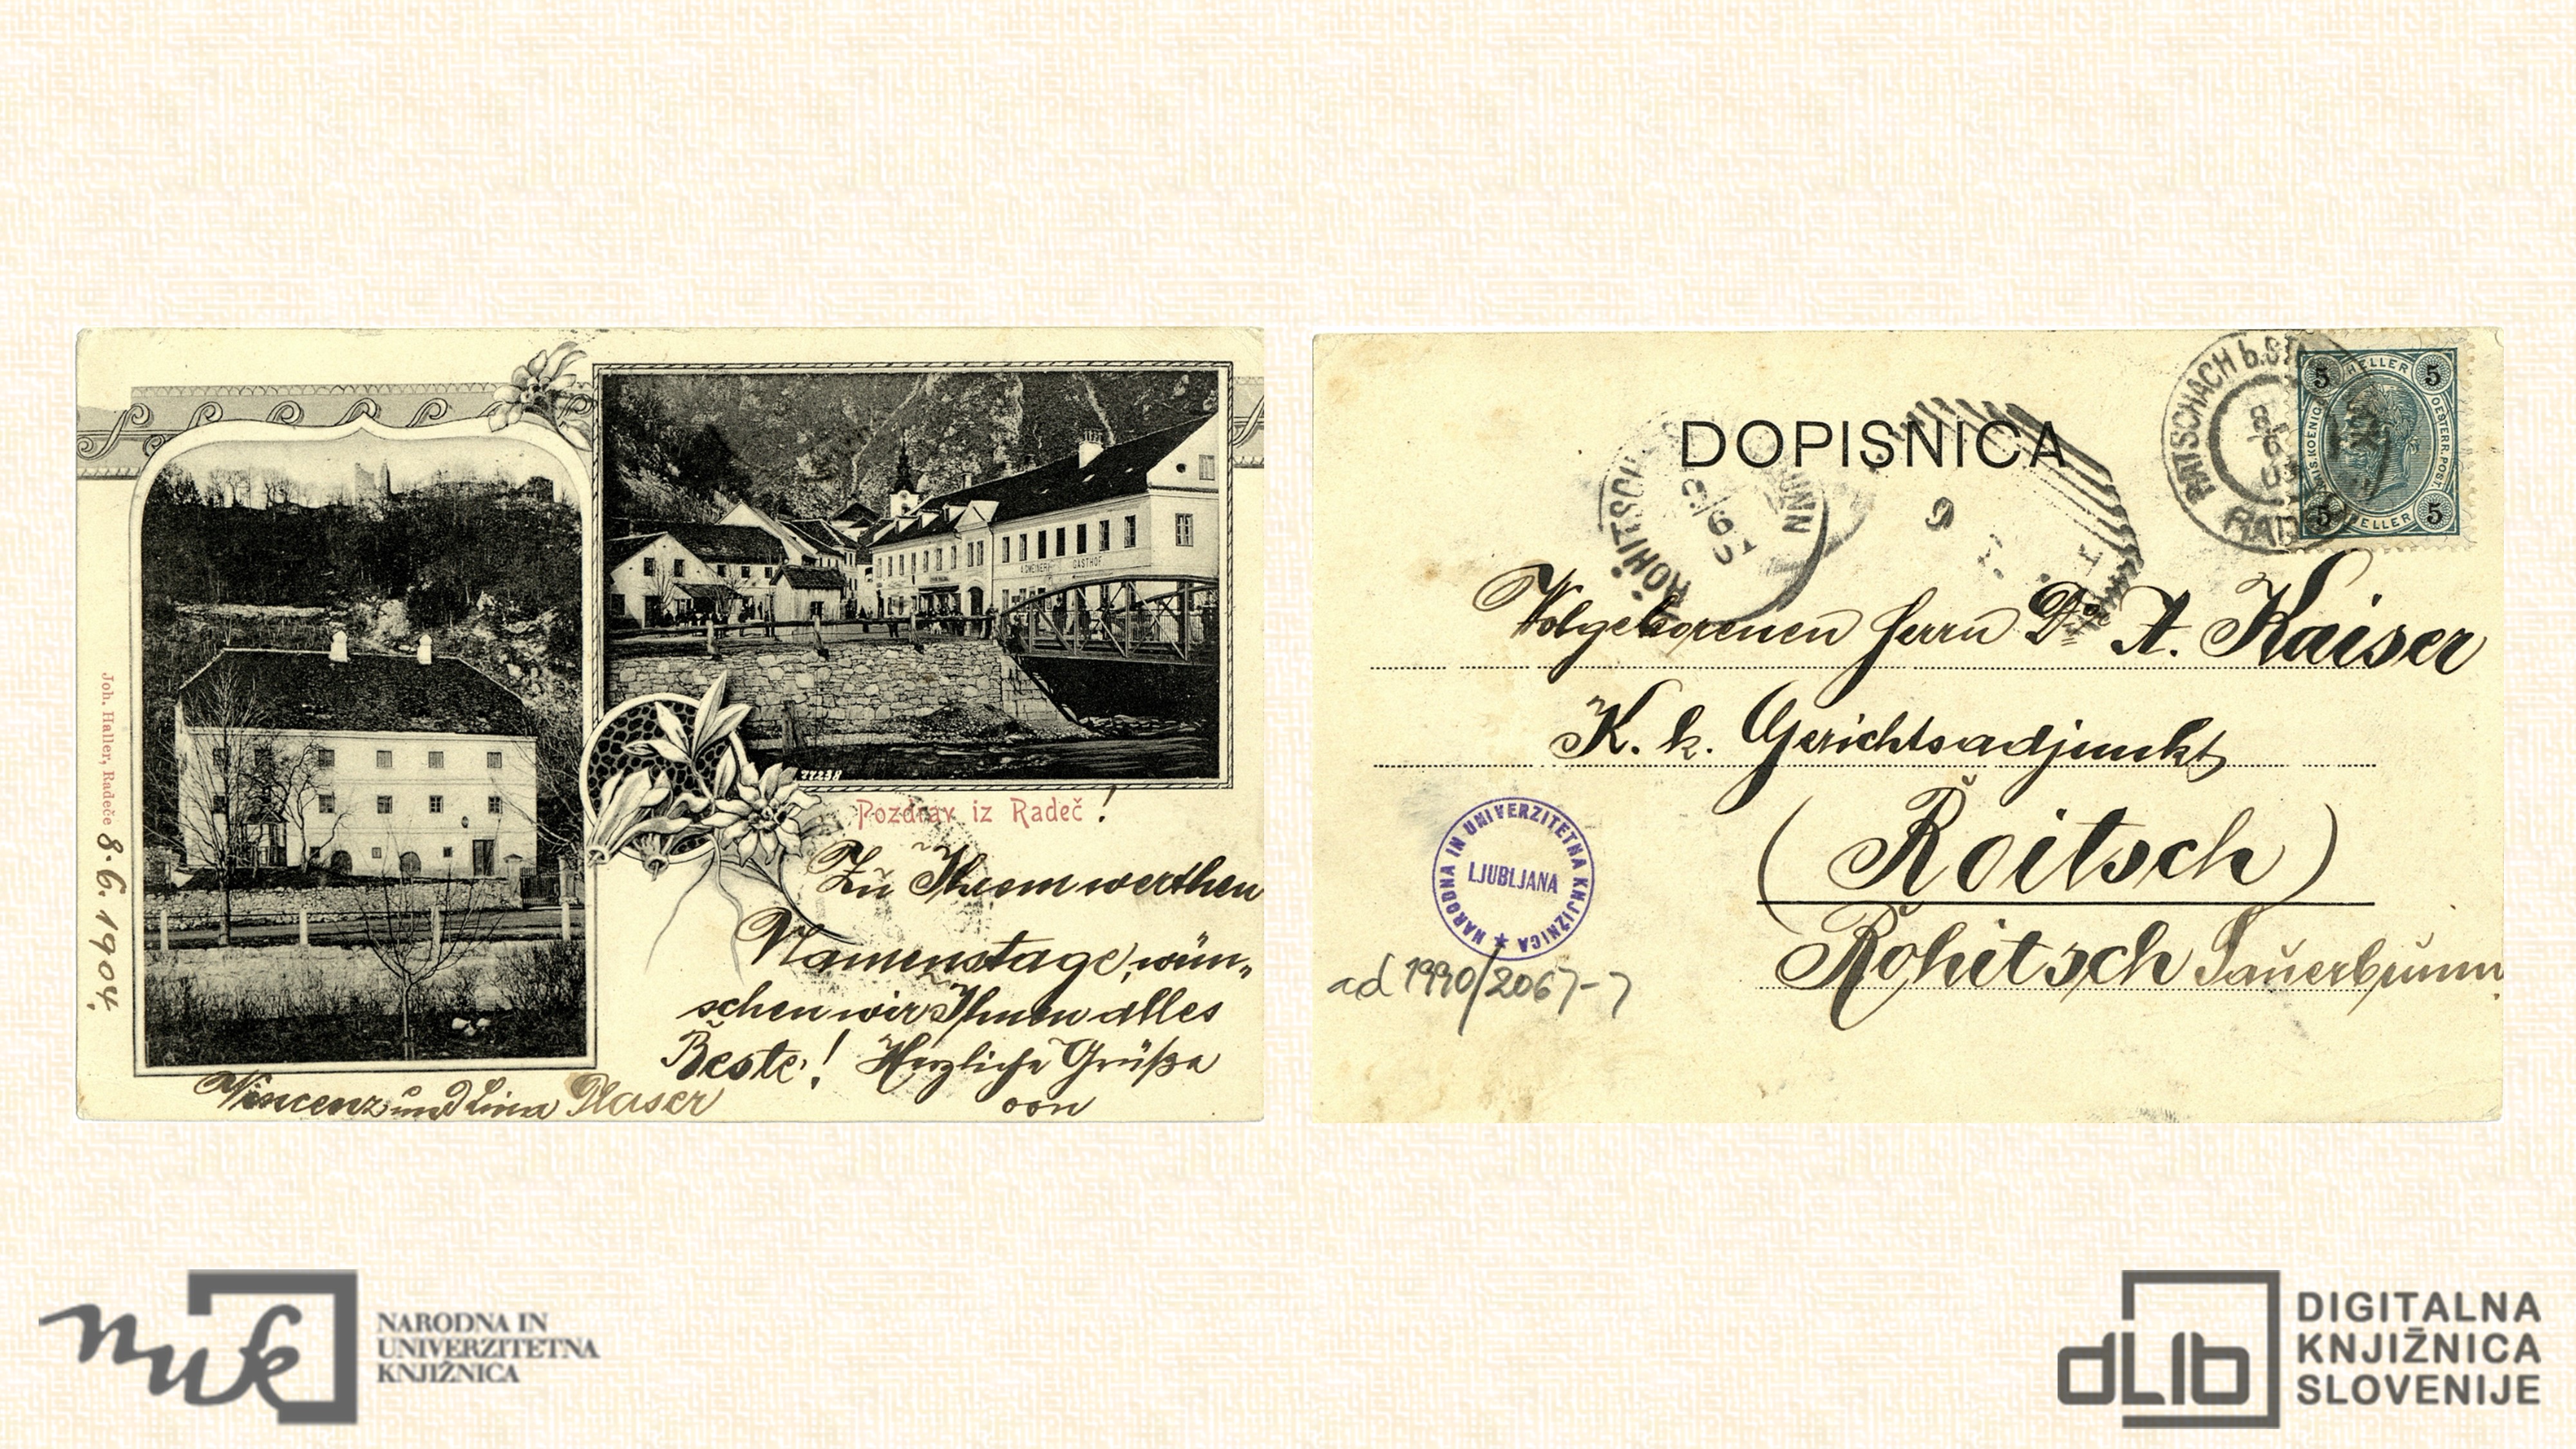 Joh. Haller, Radeče
8.6.1904.
GASTHOF
11238
Pozdrav iz Radeč!
Zu Ihrem werthen
Namenstage, wün„
schen wir Ihnen alles
Beste! Herzliche Grüße
von
Vincenz und Lina Glaser
DOPISNICA
RATSCHACH b. ST
RAD
5 HELLER 5
OESTERR. POST
5 HELLER 5
ROHITSCH
UNN
Wolgeborenen Herrn Dr. A. Kaiser
K. k. Gerichtsadjunkt
(Roitsch)
Rohitsch Sauerbrunn
NARODNA IN UNIVERZITETNA KNJIŽNICA
LJUBLJANA
ad 1990/2067-7
nuk
NARODNA IN
UNIVERZITETNA
KNJIŽNICA
dLib
DIGITALNA
KNJIŽNICA
SLOVENIJE